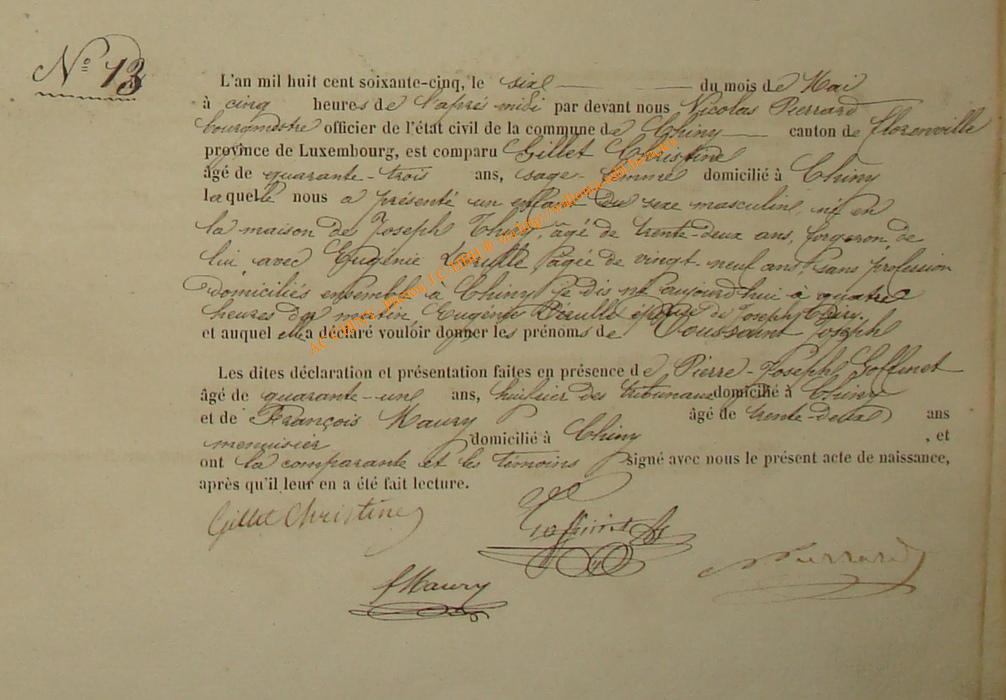 N° 13
L'an mil huit cent soixante-cinq, le six du mois de Mai
à cinq heures de l'après-midi par devant nous Nicolas Pierrard
bourgmestre officier de l'état civil de la commune de Chiny canton de florenville
province de Luxembourg, est comparu Gillet Christine
âgé de quarante-trois ans, sage-femme domicilié à Chiny
laquelle nous a présenté un enfant du sexe masculin, né en
la maison de Joseph Thiry, âgé de trente-deux ans, forgeron, de
lui avec Eugénie agée de vingt-neuf ans sans profession
domiciliés ensemble à Chiny, je dis né aujourd'hui à quatre
heures du matin Eugénie épouse de Joseph Thiry.
et auquel elle a déclaré vouloir donner les prénoms de Toussaint Joseph
Les dites déclaration et présentation faites en présence de Pierre-Joseph Goffinet
âgé de quarante-un ans, huissier des tribunaux domicilié à Chiny
et de François Maury âgé de trente-deux ans
menuisier domicilié à Chiny , et
ont la comparante et les témoins signé avec nous le présent acte de naissance,
après qu'il leur en a été fait lecture.
Gillet Christine
Goffinet
Pierrard
f Maury